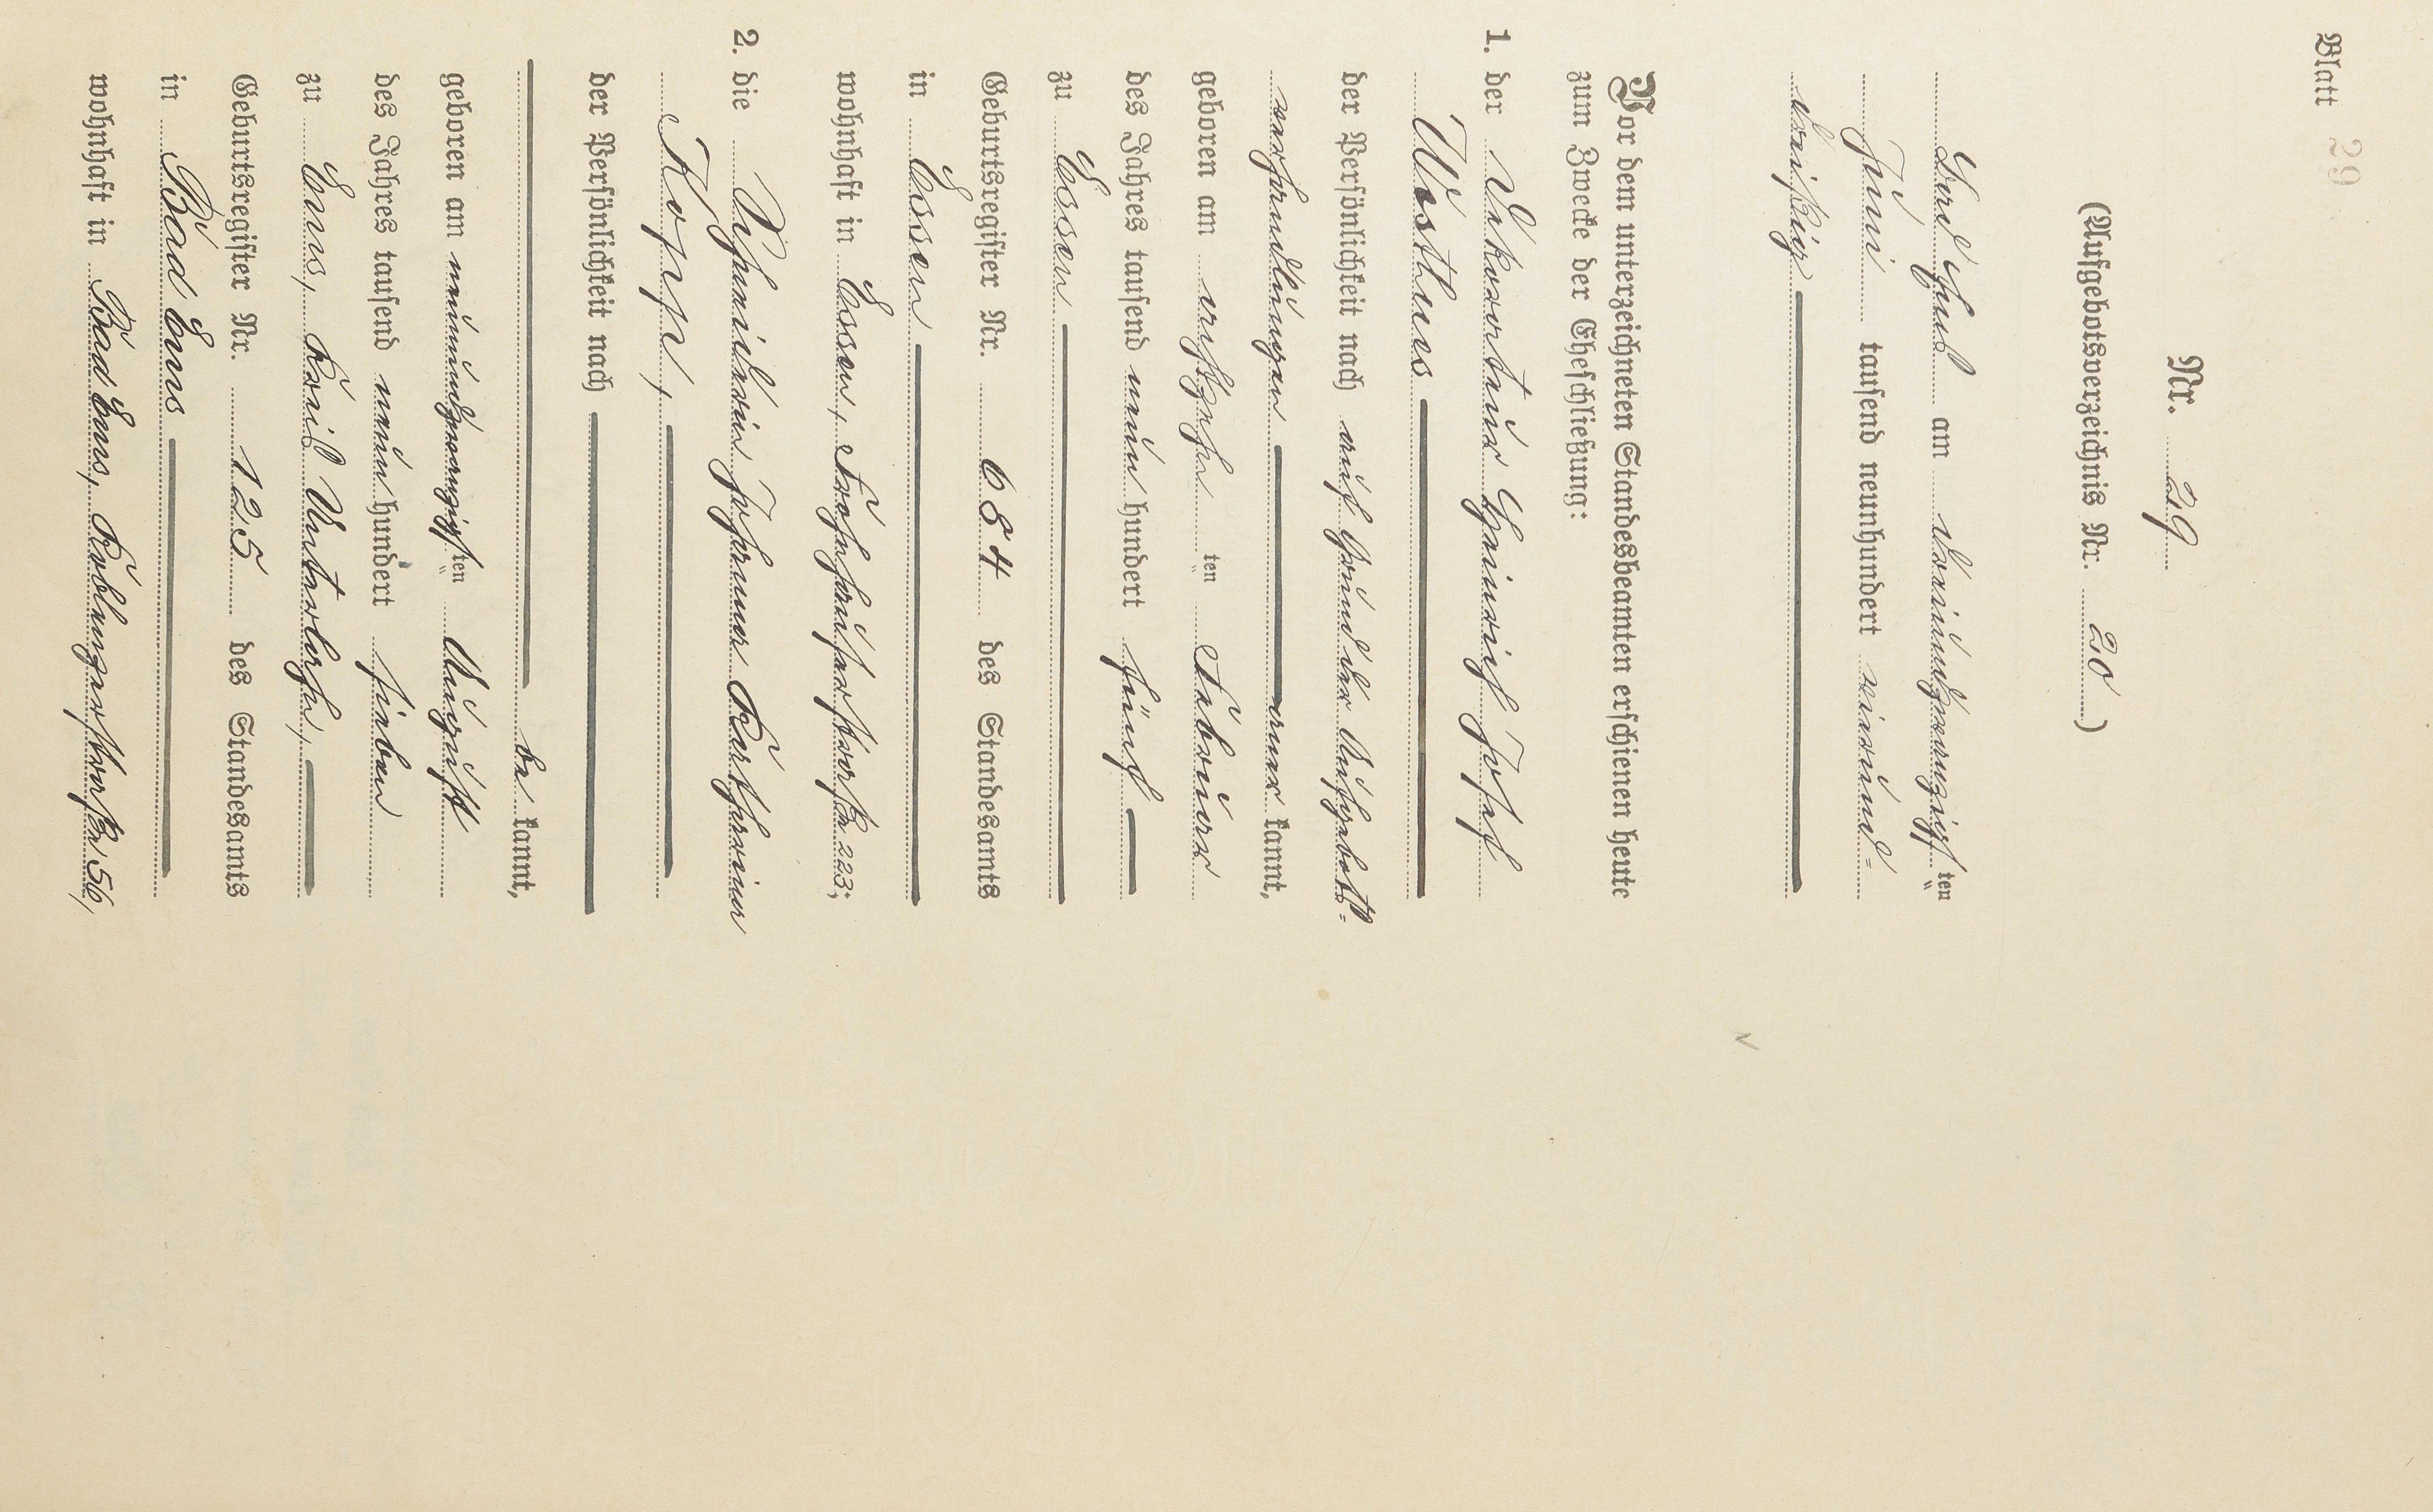 Blatt 29
Nr. 29
(Aufgebotsverzeichnis Nr. 20)
Bad Ems am dreiundzwanzigsten
Juni tausend neunhundert einund-
dreißig
Vor dem unterzeichneten Standesbeamten erschienen heute
zum Zwecke der Eheschließung:
1. der Dekorateur Heinrich Josef
Westhues
der Persönlichkeit nach auf Grund der Aufgebots-
verhandlungen aner kannt,
geboren am achtzehn ten Februar
des Jahres tausend neun hundert fünf
zu Essen
Geburtsregister Nr. 684 des Standesamts
in Essen
wohnhaft in Essen, Frohnhauserstraße 223;
2. die Schneiderin Johanna Katharina
Kopp,
der Persönlichkeit nach
be kannt,
geboren am neunundzwanzigsten August
des Jahres tausend neun hundert sieben
zu Ems, Kreis Unterlahn,
Geburtsregister Nr. 125 des Standesamts
in Bad Ems
wohnhaft in Bad Ems, Koblenzerstraße 56,